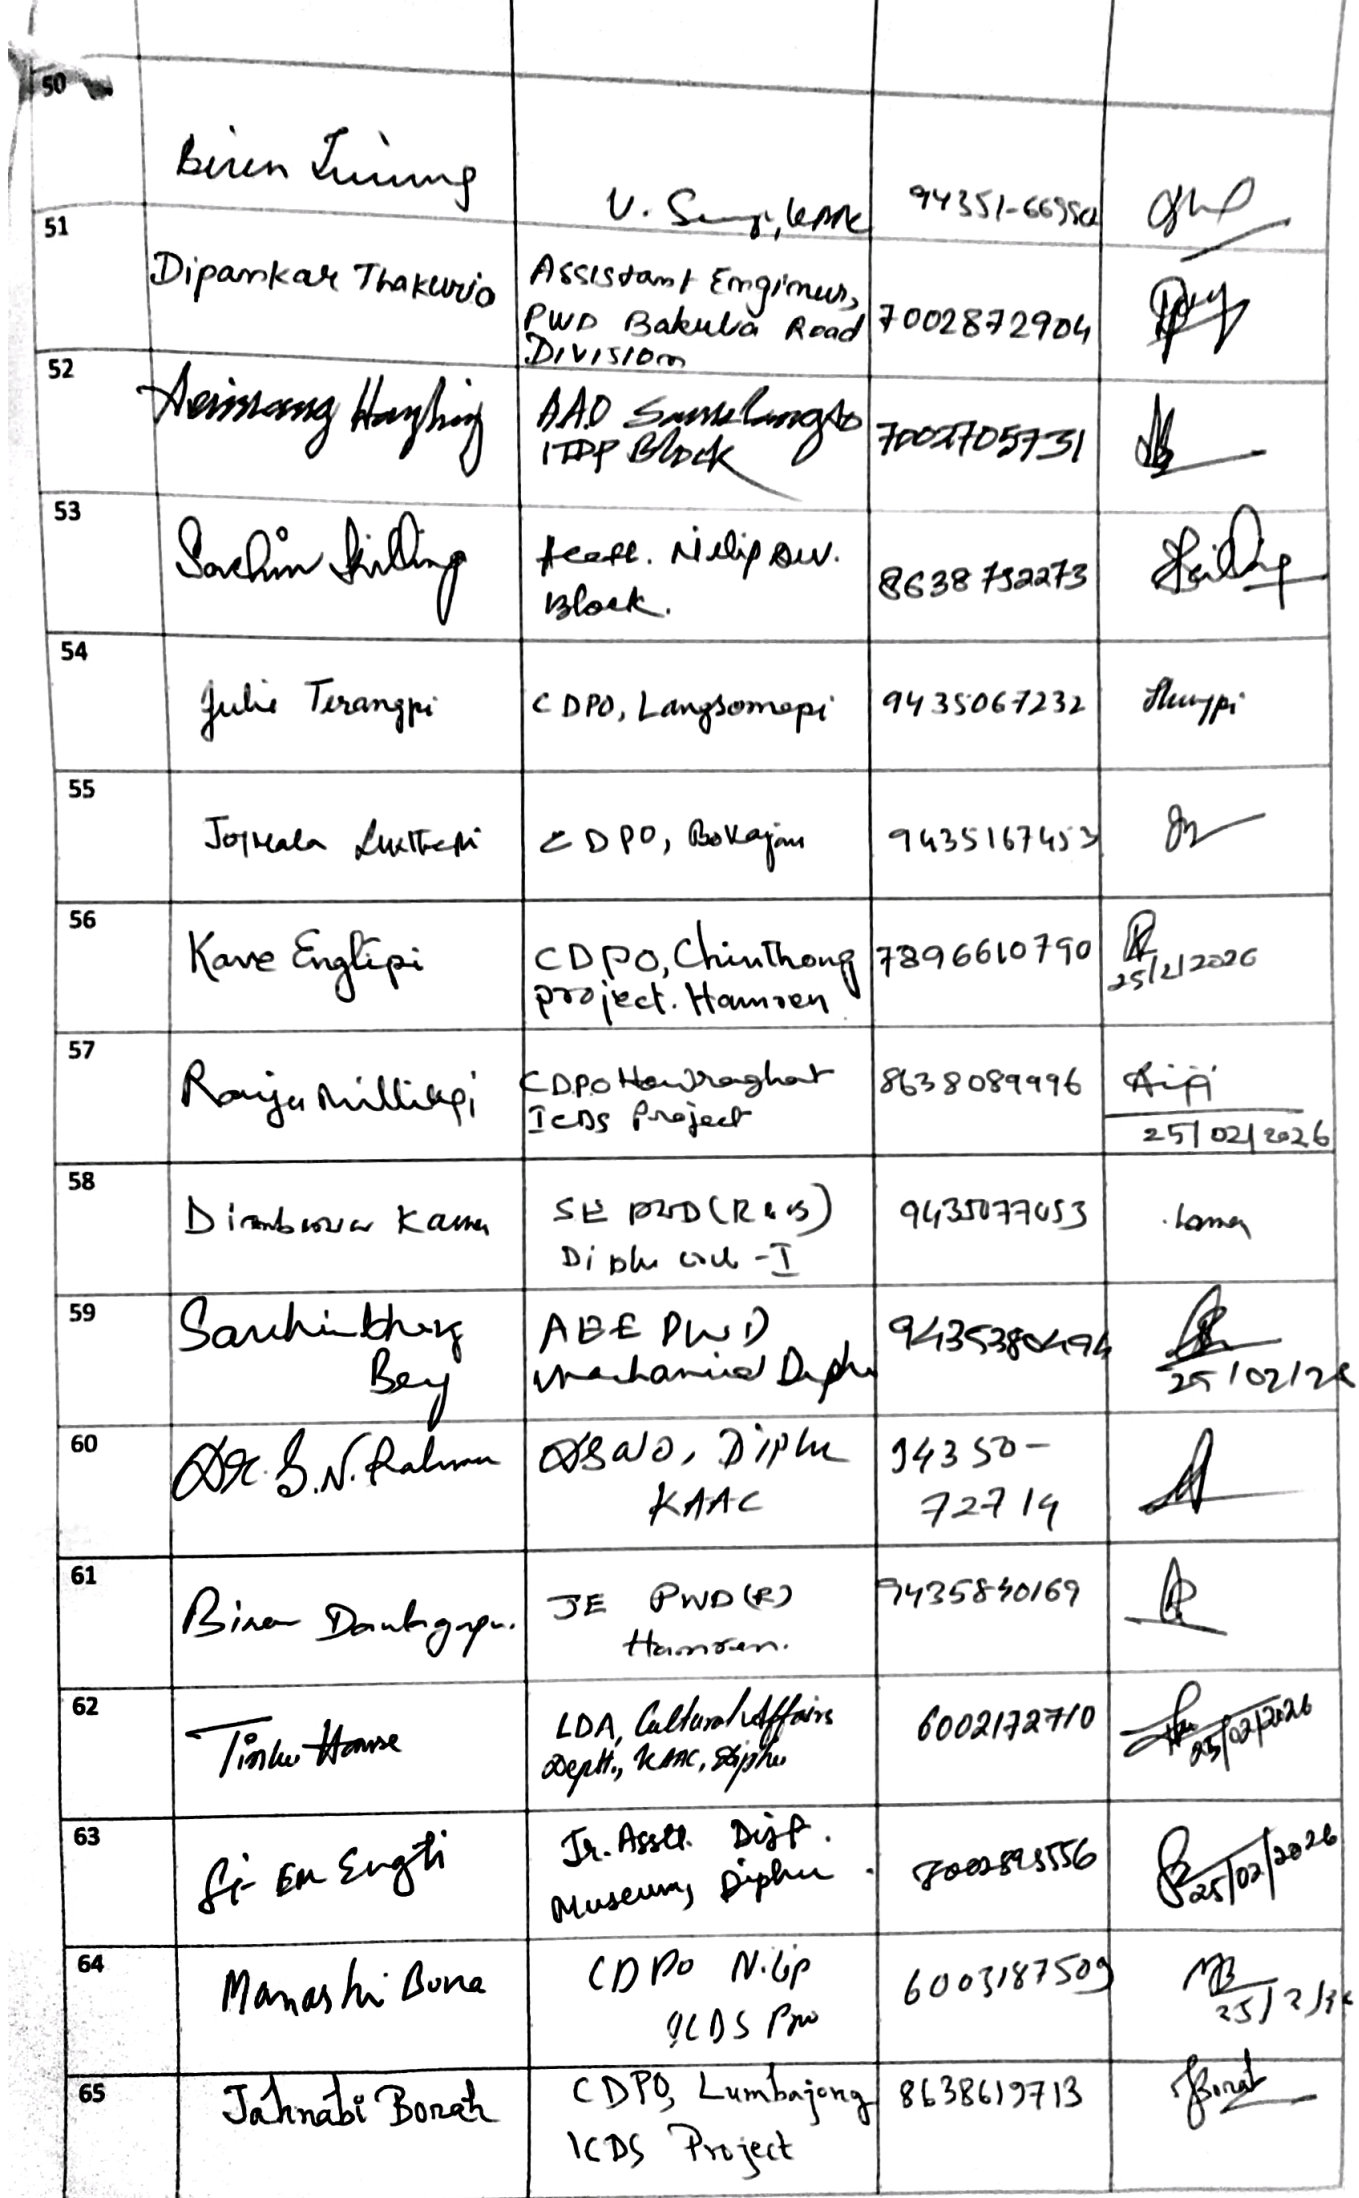 50
Biren
94351-6695
51
Dipankar Thakuria
Assistant Engineer,
PWD Bakulia Road
Division
7002872904
52
AAO
ITDP Block
7002705731
53
Sachin
Nilip Dev.
Block.
8638792273
54
Julie Terangpi
CDPO, Langsomepi
9435067232
55
CDPO, Bokajan
9435167453
56
Kave Engtipi
CDPO, Chinthong
project. Hamren
7896610790
25/2/2026
57
Ranju Millikpi
CDPO Howraghat
ICDS Project
8638089996
25/02/2026
58
SE PWD (R & B)
Diphu - I
9435077053
59
Bey
AEE PWD
Mechanical Diphu
9435380494
25/02/26
60
Dr. S.N. Rahman
Diphu
KAAC
94350-
72719
61
Biren
JE PWD (R)
Hamren.
9435840169
62
Tinku Hanse
LDA, Cultural Affairs
Deptt., KAAC, Diphu
6002172710
25/02/2026
63
Engti
Jr. Asstt. Dist.
Museum, Diphu
25/02/2026
64
Manashi Bora
CDPO Nilip
ICDS
6003187509
25/2/26
65
Jahnabi Borah
CDPO, Lumbajong
ICDS Project
8638619713
Borah